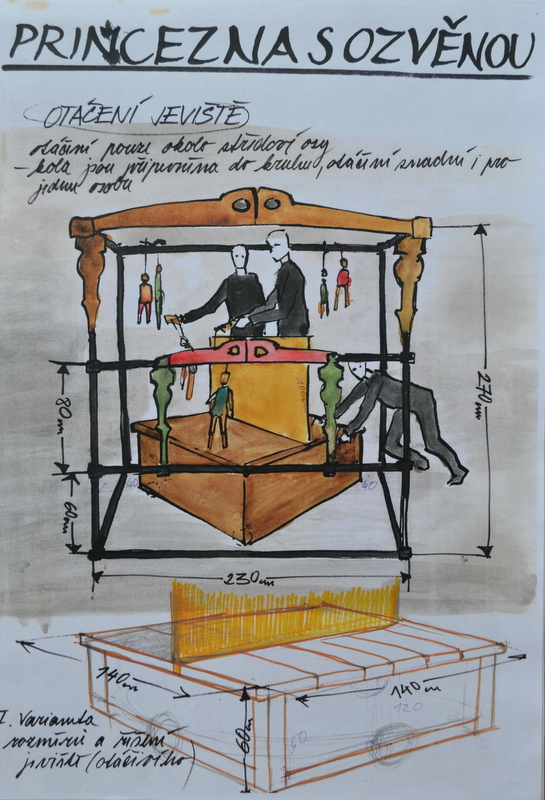 PRINCEZNA S OZVĚNOU
OTÁČENÍ JEVIŠTĚ
otáčení pouze okolo středové osy
- kola jsou připevněna do kruhu, otáčení snadní i pro
jednu osobu
270cm
80cm
60cm
40
40
230cm
140cm
140cm
120
60cm
I. Varianta
rozměrů a řešení
jeviště (otáčivého)